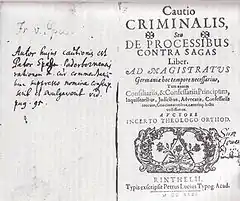 Fr. v.
Autor hujus cautionis est
Pater Spee Paderbornensis
suppresso nomine
et vulgavit vid
pag. 95.
Cautio
CRIMINALIS,
Seu
DE PROCESSIBUS
CONTRA SAGAS
Liber.
AD MAGISTRATUS
Germaniæ hoc tempore necessarius,
Tum autem
Consiliariis, & Confessariis Principum,
Inquisitoribus, Judicibus, Advocatis, Confessariis
reorum, Concionatoribus, cæterisq; lectu
utilissimus.
AUCTORE
INCERTO THEOLOGO ORTHOD.
RINTHELII,
Typis exscripsit Petrus Lucius Typog. Acad.